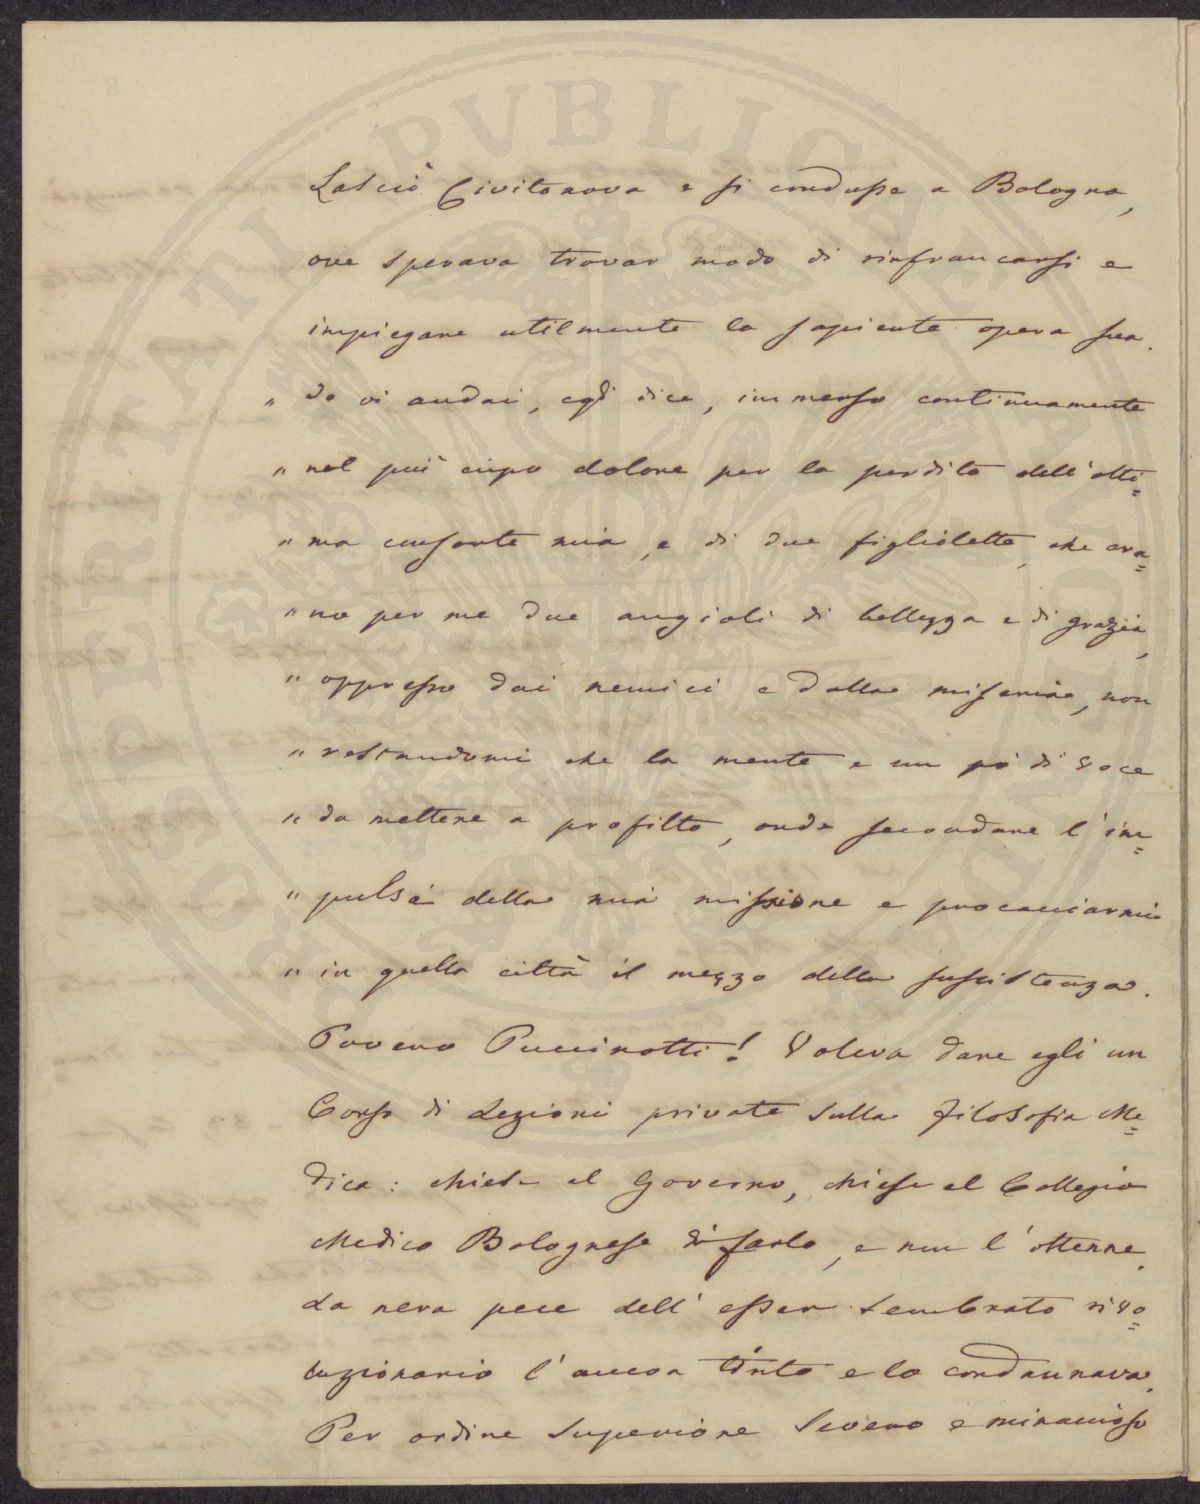 Lasciò Civitanova e si condusse a Bologna,
ove sperava trovar modo di rinfrancarsi e
impiegare utilmente la sapiente opera sua.
„ Io vi andai, egli dice, immerso continuamente
„ nel più cupo dolore per la perdita dell'otti=
„ ma consorte mia, e di due figliolette, che era=
„ no per me due angioli di bellezza e di grazia,
„ oppresso dai nemici e dalla miseria, non
„ restandomi che la mente e un pò di voce
„ da mettere a profitto, onde secondare l'im=
„ pulso della mia missione e procacciarmi
„ in quella città il mezzo della sussistenza.
Povero Puccinotti! Voleva dare egli un
Corso di Lezioni private sulla Filosofia Me=
dica: chiese al Governo, chiese al Collegio
Medico Bolognese di farlo, e non l'ottenne.
La nera pece dell'esser sembrato rivo=
luzionario l'aveva tinto e lo condannava.
Per ordine superiore severo e minaccioso
PROSPERITATI PVBLICAE